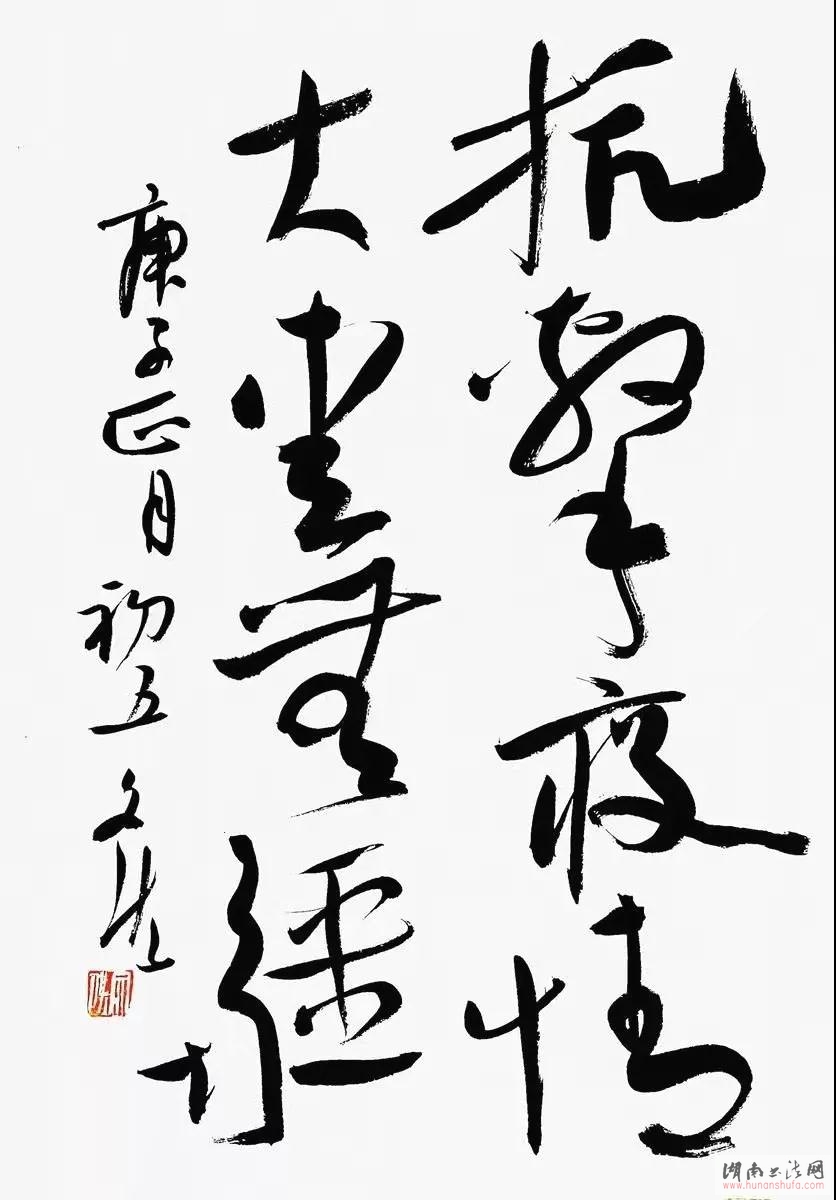 抗擊疫情
大愛無疆
庚子正月初五 文
湖南书法网
www.hunanshufa.com